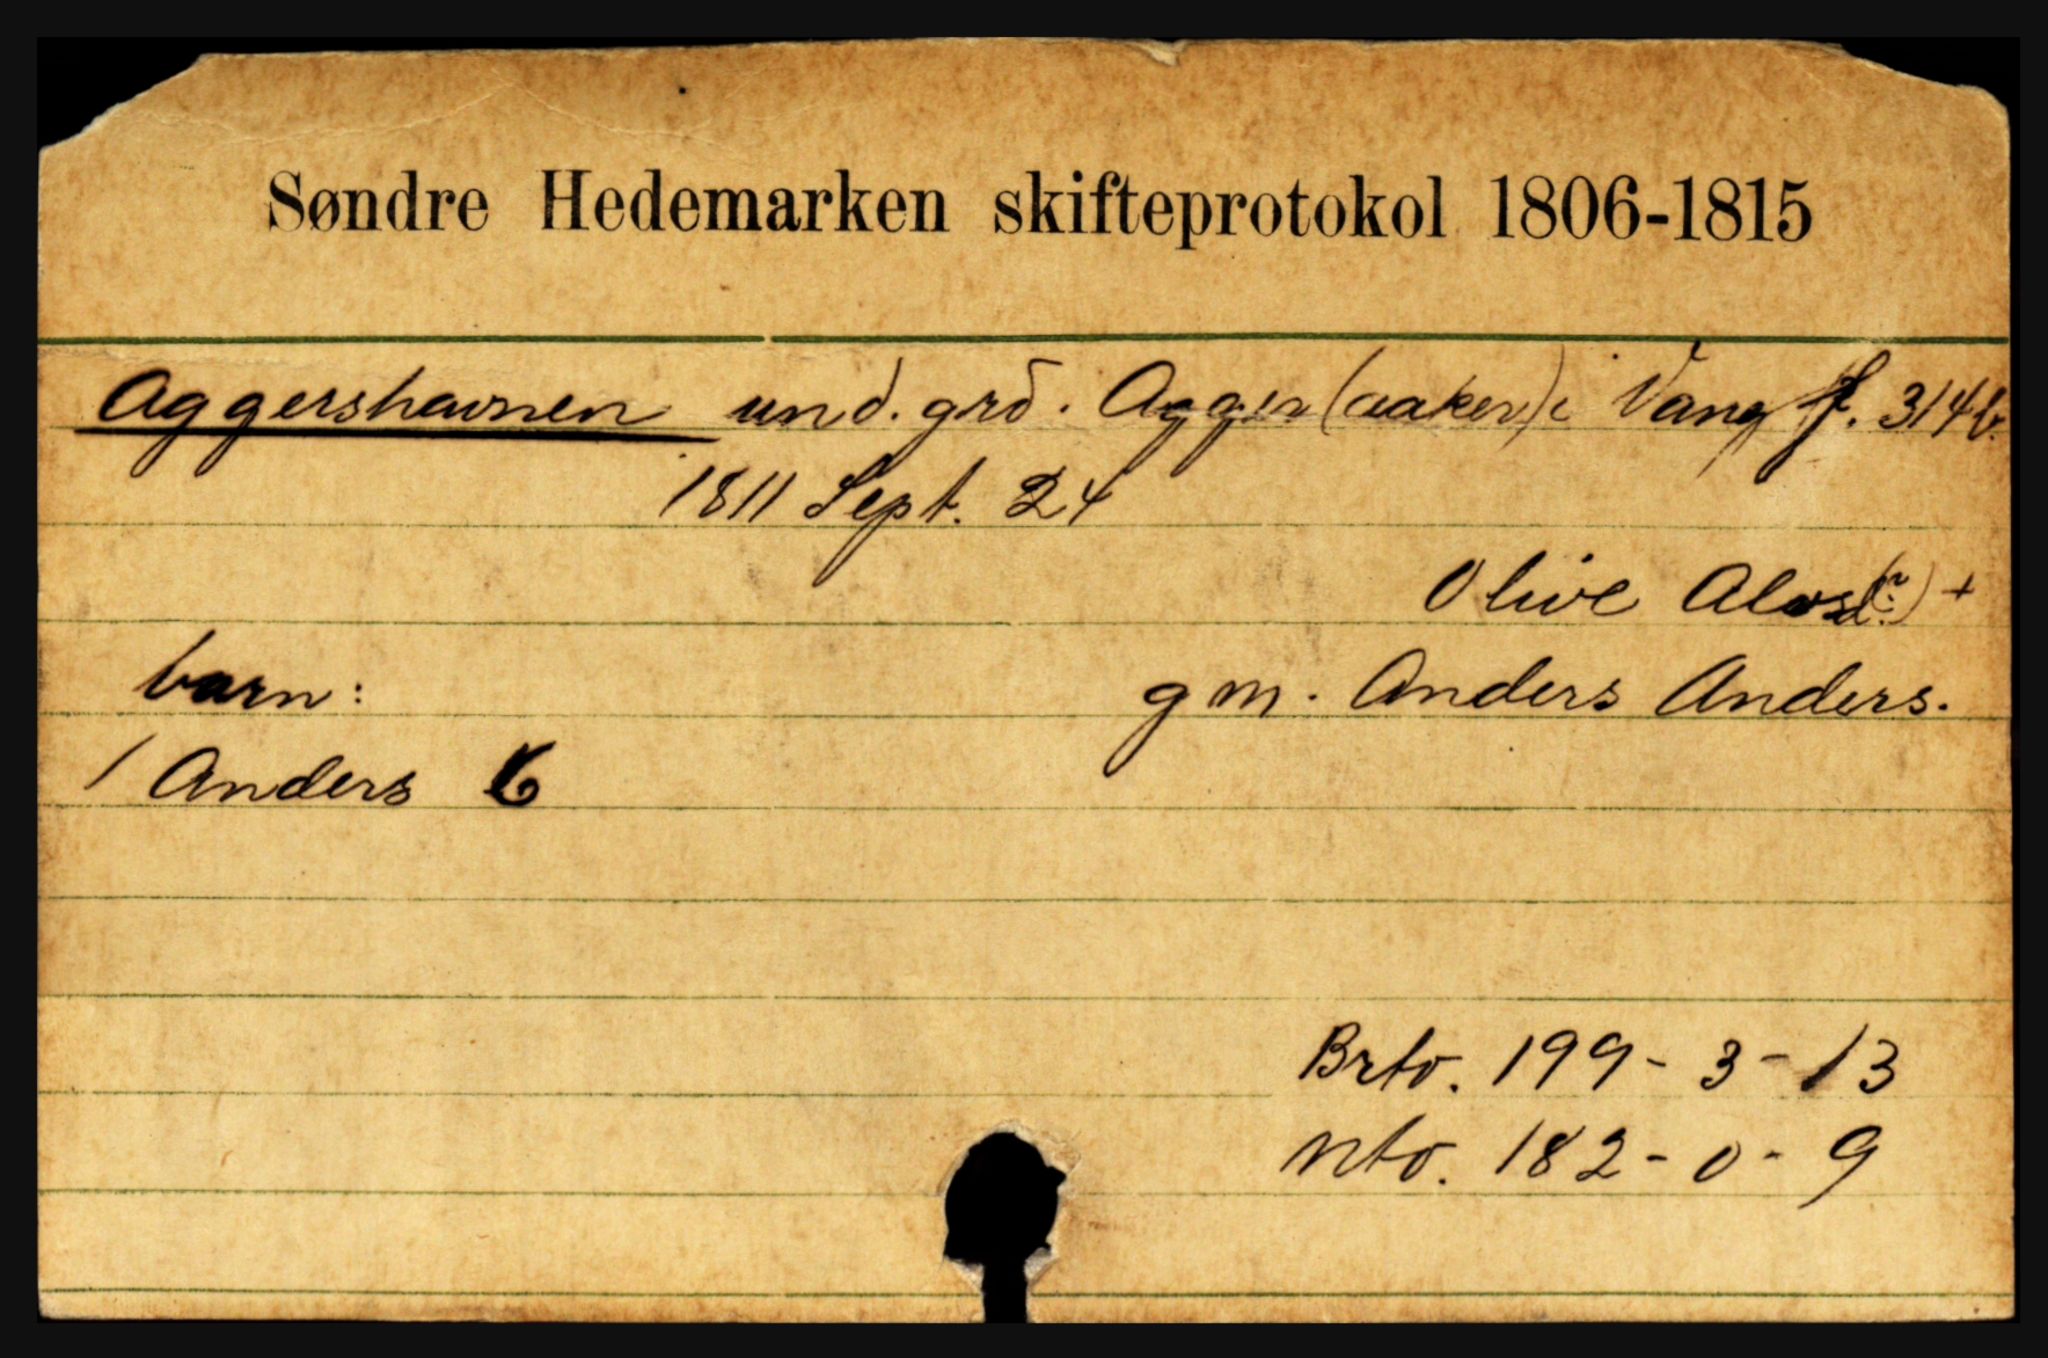 Søndre Hedemarken skifteprotokol 1806-1815
Aggershavnen und. grd. Agger (aaker) i Vang f. 314b.
1811 Sept. 24
Olive Alvsd(?) +
barn: gm. Anders Anders.
1 Anders 6
Brto. 199 - 3 - 13
Nto. 182 - 0 - 9